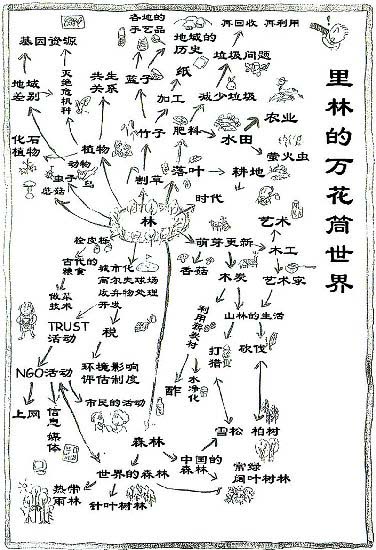 里林的万花筒世界
各地的
手艺品
再回收 再利用
基因资源
地域的
历史
垃圾问题
地域
差别
灭绝危机种
共生
关系
篮子
纸
加工
减少垃圾
化石
植物
植物
竹子
肥料
水田
农业
萤火虫
动物
虫子
鸟
蘑菇
割草
落叶
耕地
时代
林
艺术
萌芽更新
木工
香菇
木炭
艺术家
古代的
粮食
城市化
高尔夫球场
废弃物处理
开发
做菜
技术
山林的生活
TRUST
活动
税
打猎
砍伐
NGO活动
环境影响
评估制度
水净化
醋
上网
信息
媒体
市民的活动
森林
雪松
柏树
世界的森林
中国的
森林
常绿
阔叶树林
热带
雨林
针叶树林